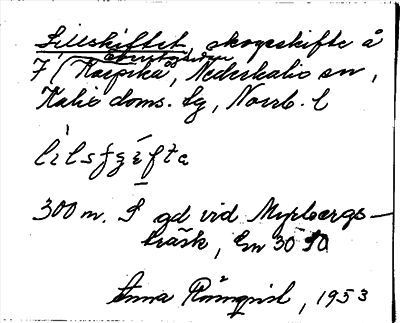 Lillskiftet, skogsskifte å
7 Karpika, Nederkalix sn,
Kalix doms. sg, Norrb. l
300 m. S gd vid Myrbergs-
träsk, Em 30 50
Anna Rönnqvist, 1953